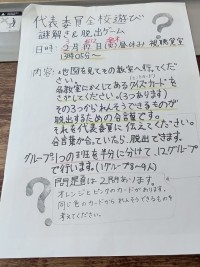 代表委員全校遊び
謎解き&脱出ゲーム
日時: 2月 日( )昼休み 視聴覚室
13時05分〜
内容: 地図を見てその教室へ行ってください。
各教室にかくしてあるクイズカードを
さがしてください。(3つあります)
その3つかられんそうできるものが
脱出するための合言葉です。
それを代表委員に伝えてください。
合言葉が合っていたら、脱出できます。
グループ1つの班を半分に分けて、12グループ
で行います。(1グループ8〜9人)
問題は2問あります。
オレンジとピンクのカードがあります。
同じ色のカードかられんそうできるものを
考えてください。